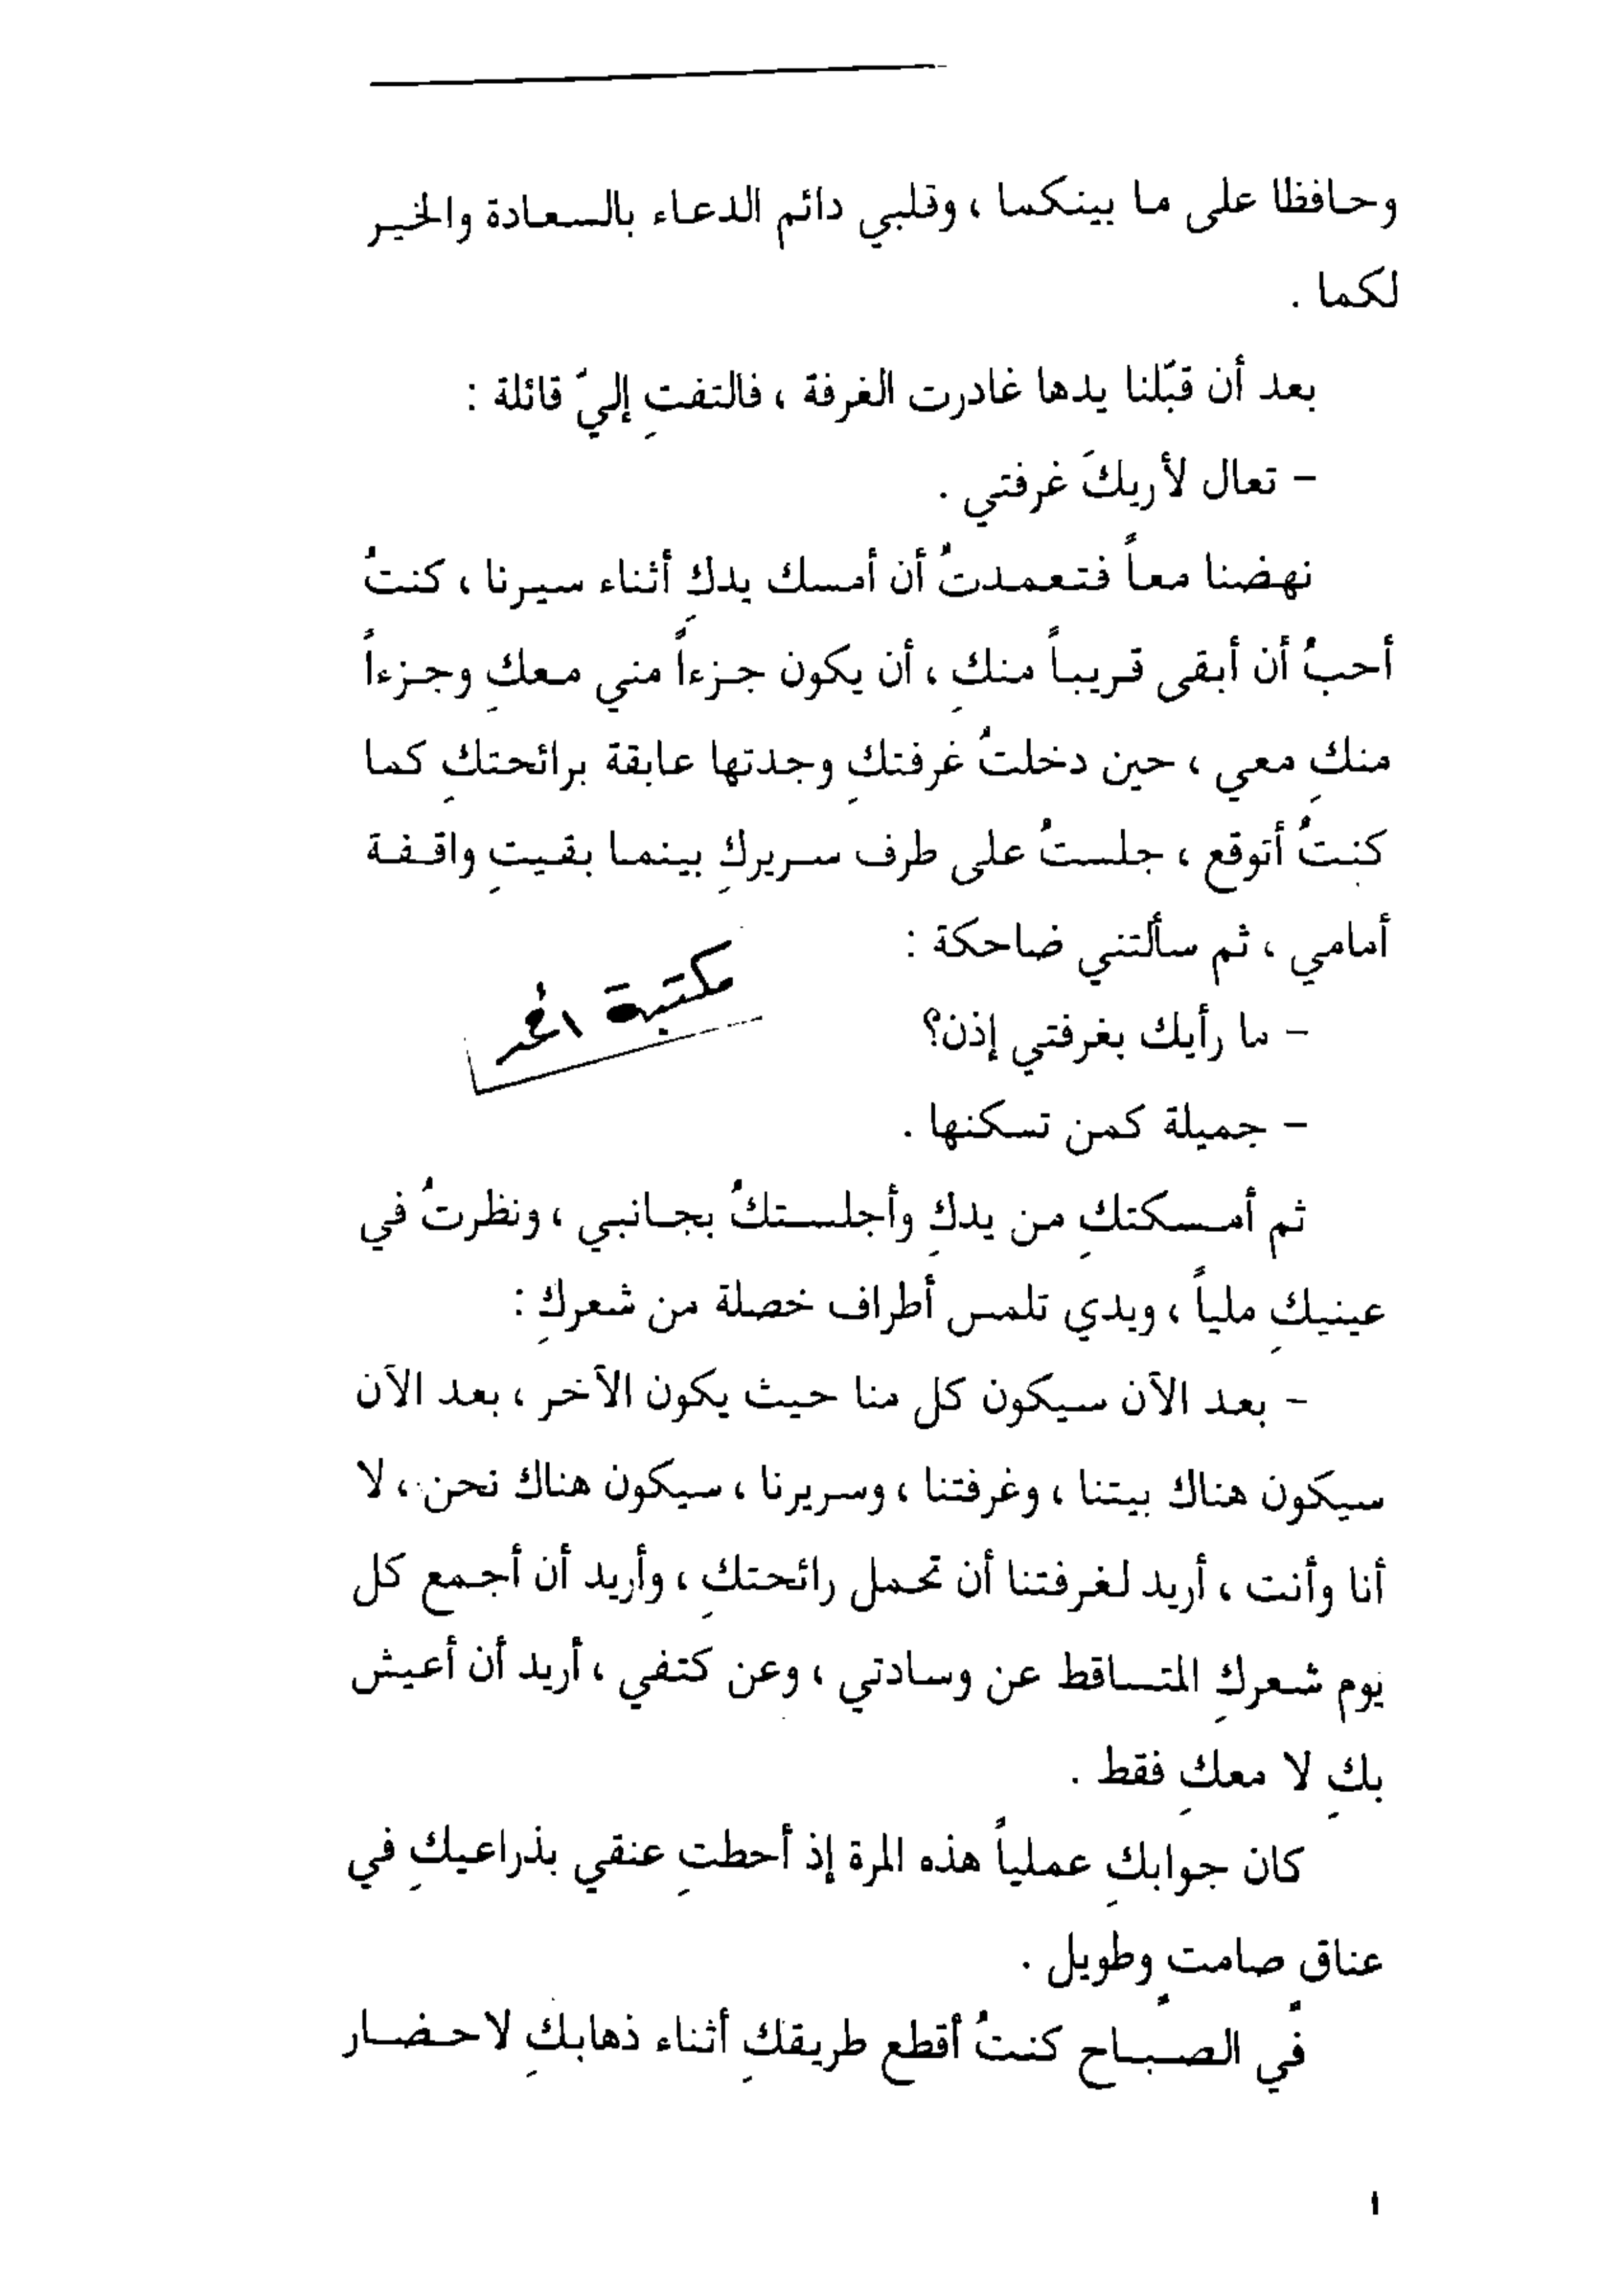 وحافظا على ما بينكما ، وقلبي دائم الدعاء بالسعادة والخير
لكما .
بعد أن قبّلنا يدها غادرت الغرفة ، فالتفتِ إليّ قائلة :
– تعال لأريكَ غرفتي .
نهضنا معاً فتعمدتُ أن أمسك يدكِ أثناء سيرنا ، كنتُ
أحبُ أن أبقى قريباً منكِ ، أن يكون جزءاً مني معكِ وجزءاً
منكِ معي ، حين دخلتُ غرفتكِ وجدتها عابقة برائحتكِ كما
كنتُ أتوقع ، جلستُ على طرف سريركِ بينما بقيتِ واقفة
أمامي ، ثم سألتني ضاحكة :
– ما رأيك بغرفتي إذن؟
مكتبة
– جميلة كمن تسكنها .
ثم أمسكتكِ من يدكِ وأجلستكُ بجانبي ، ونظرتُ في
عينيكِ ملياً ، ويدي تلمس أطراف خصلة من شعركِ :
– بعد الآن سيكون كل منا حيث يكون الآخر ، بعد الآن
سيكون هناك بيتنا ، وغرفتنا ، وسريرنا ، سيكون هناك نحن ، لا
أنا وأنت ، أريد لغرفتنا أن تحمل رائحتكِ ، وأريد أن أجمع كل
يوم شعركِ المتساقط عن وسادتي ، وعن كتفي ، أريد أن أعيش
بكِ لا معكِ فقط .
كان جوابكِ عملياً هذه المرة إذ أحطتِ عنقي بذراعيكِ في
عناق صامتٍ وطويل .
في الصباح كنتُ أقطع طريقكِ أثناء ذهابكِ لاحضار